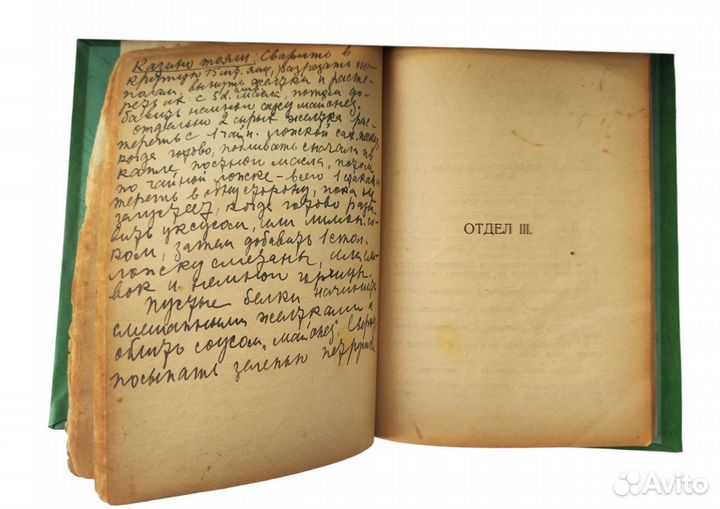 Казино тояш: Сварить в
крутую 15 шт. яиц, разрезать по-
полам, вынуть желтки и расте-
реть их с 5 д. масла, потом до-
бавить немного соус майонез.
отдельно 2 сырых желтка рас-
тереть с 1 чайн. ложкой сах. песку,
когда готово, поливать сначала по
капле, постного масла, потом
по чайной ложке - всего 1 стакан
тереть в одну сторону, пока не
загустеет, когда готово разба-
вить уксусом, или лимон. со-
ком, затем добавить 1 стол.
ложку сметаны, или сли-
вок и немного горчицы.
Пустые белки начинить
смешанными желтками и
облить соусом "майонез", сверху
посыпать зеленью петрушки
ОТДЕЛ III.
Avito